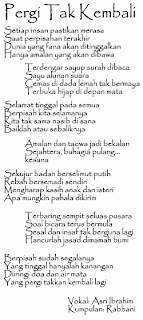 Pergi Tak Kembali
Setiap insan pastikan merasa
Saat perpisahan terakhir
Dunia yang fana akan ditinggalkan
Hanya amalan yang akan dibawa
Terdengar sayup surah dibaca
Sayu alunan suara
Cemas di dada lemah tak bermaya
Terbuka hijap di depan mata
Selamat tinggal pada semua
Berpisah kita selamanya
Kita tak sama nasib di sana
Baiklah atau sebaliknya
Amalan dan taqwa jadi bekalan
Sejahtera, bahagia pulang...
kesana
Sekujur badan berselimut putih
Rebah bersemadi sendiri
Mengharap kasih anak dan isteri
Apa mungkin pahala dikirim
Terbaring sempit seluas pusara
Soal bicara terus bermula
Sesal dan insaf tak berguna lagi
Hancurlah jasad dimamah bumi
Berpisah sudah segalanya
Yang tinggal hanyalah kenangan
Diiringi doa dan air mata
Yang pergi takkan kembali lagi
Vokal: Asri Ibrahim
Kumpulan: Rabbani